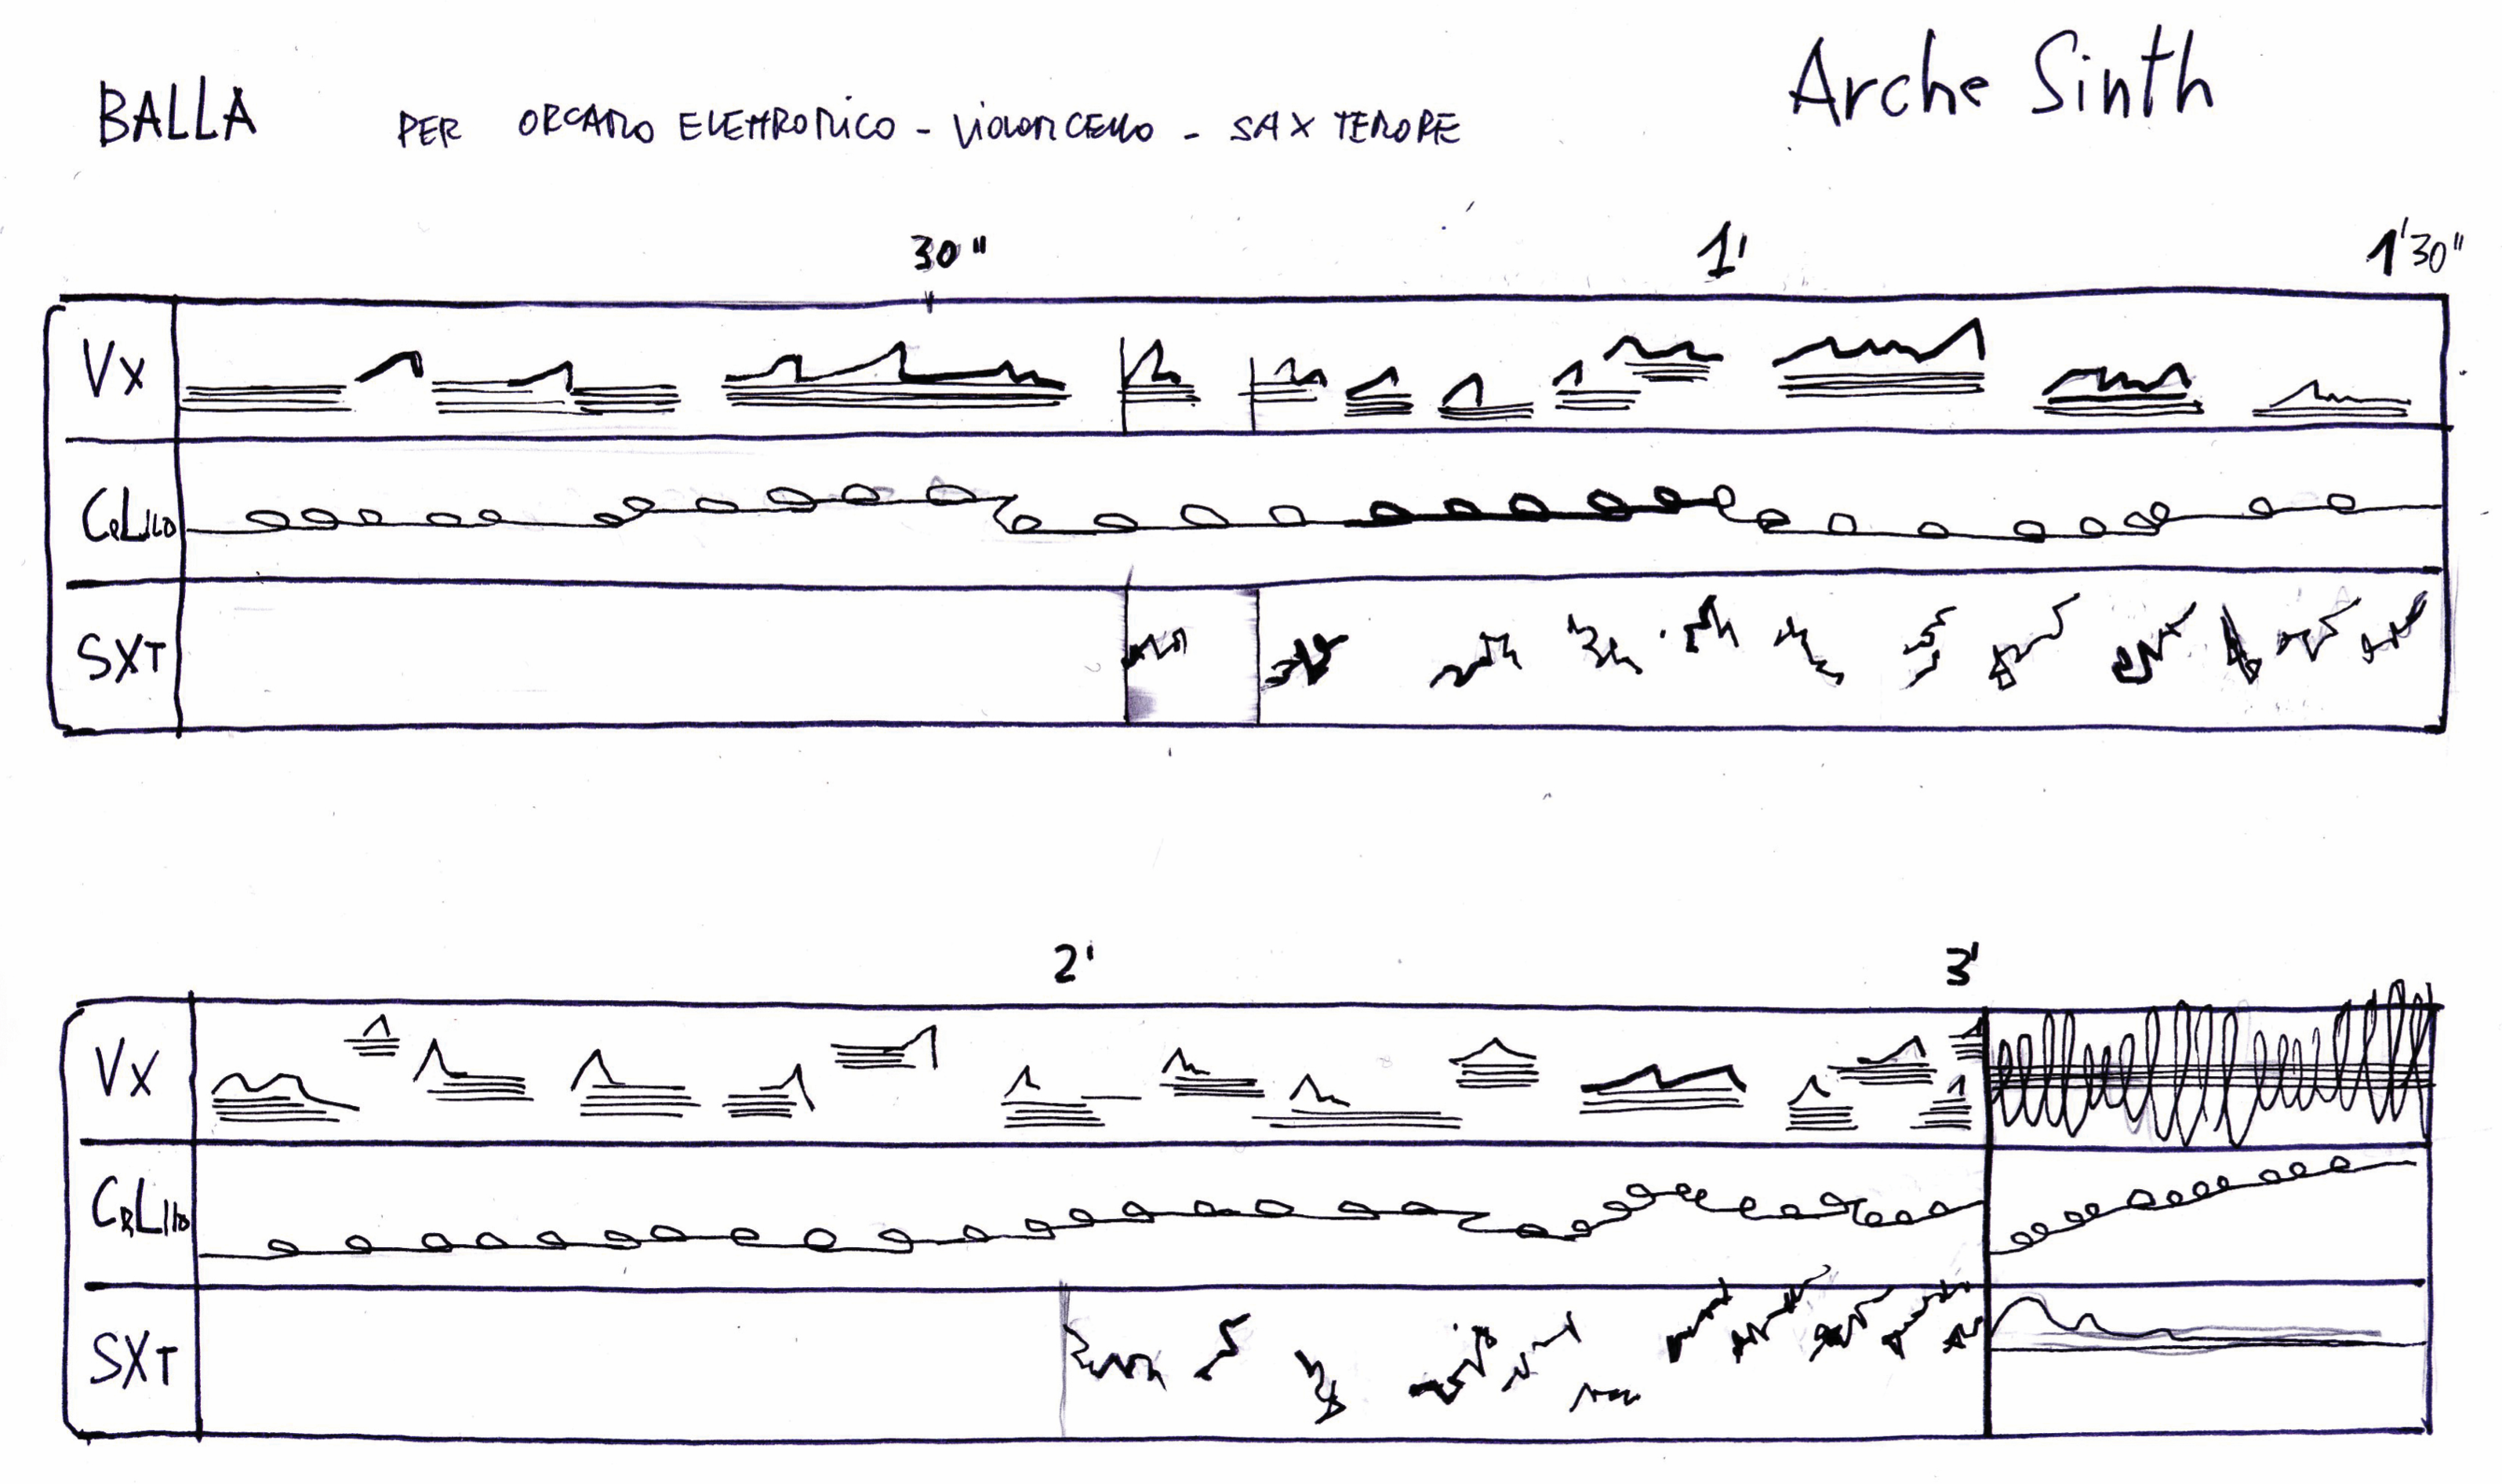 BALLA PER ORGANO ELETTRONICO - VIOLONCELLO - SAX TENORE Arche Sinth
30" 1' 1'30"
VX
CELLO
SXT
2' 3'
VX
CELLO
SXT